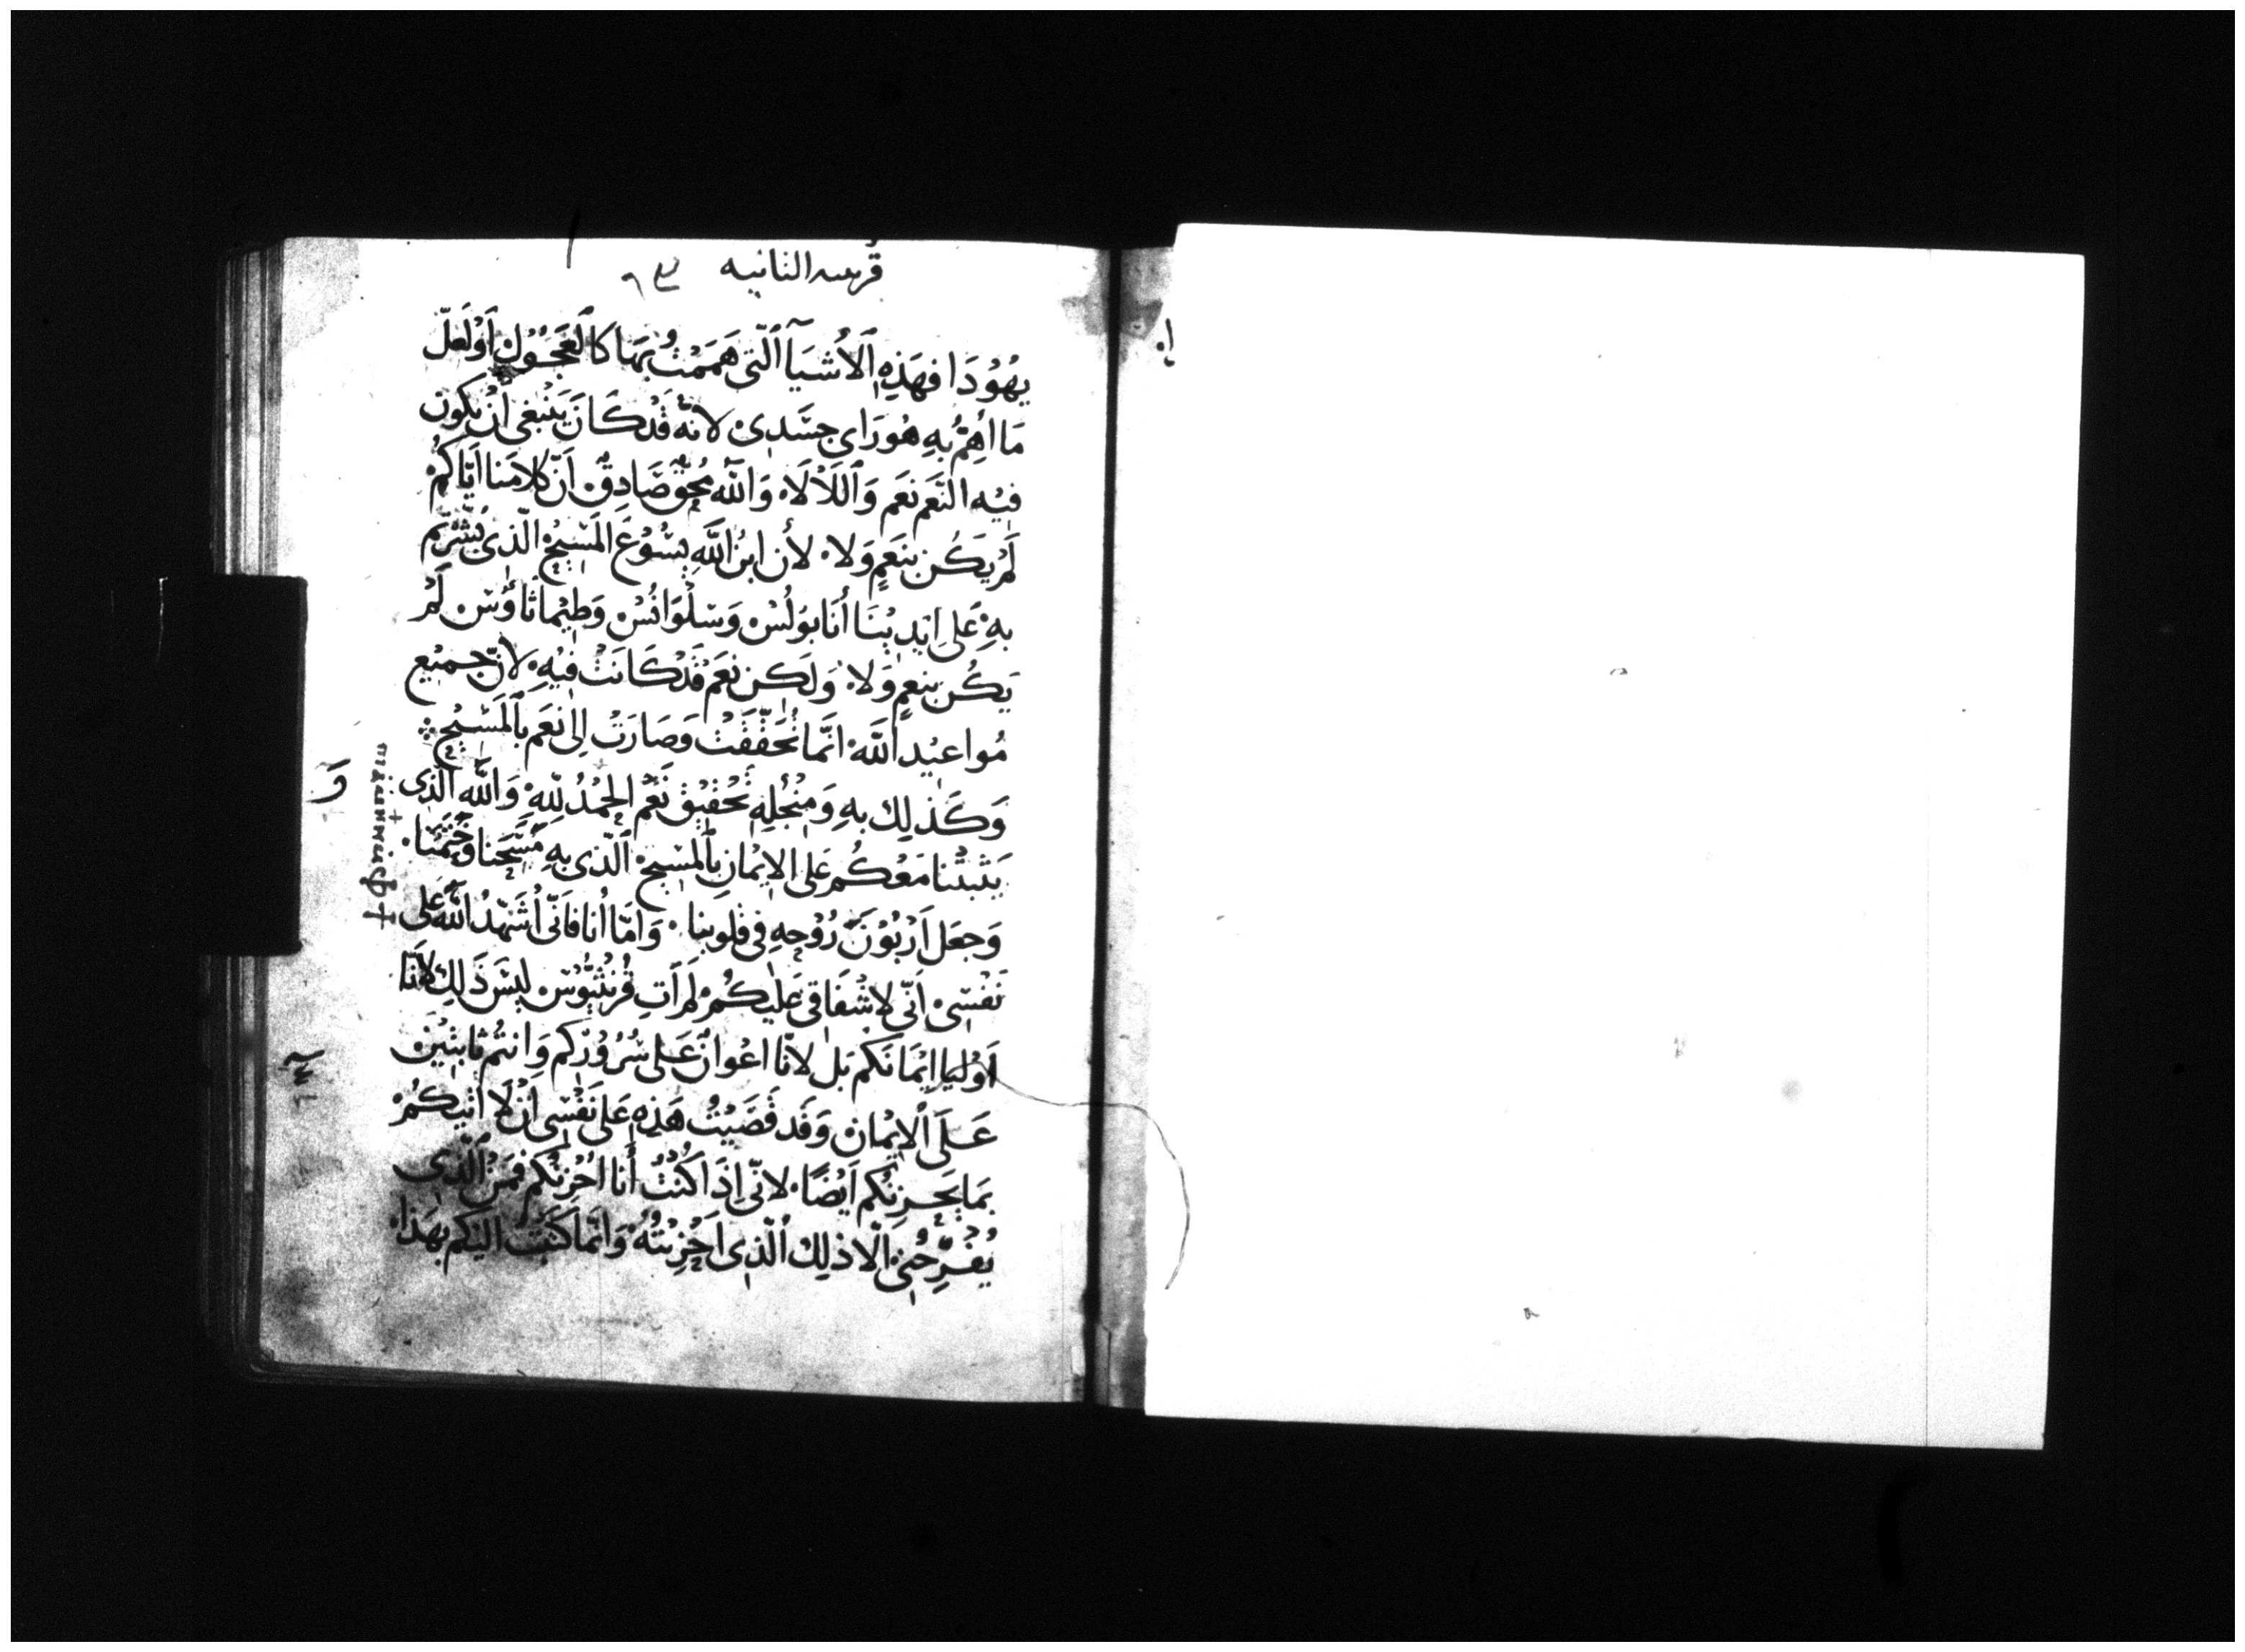 قرنتيه الثانيه
يَهُوُدَا فهَذِهِ اٱلأشيَآ ٱلَّتى هَمَمْتُ بهَا كَاٱلعَجُوُلِ أَوْلَعَلَّ
مَا اهِمُّ بِهِ هُورَاى جسَّدِى لانّه قَدْ كَانَ يَنْبغى أنْ يكون
فيْه النَّعَم نَعَم وَاللَّاَ لَاْ وَاللّٰه مُحِقٌ صَادِقٌ أنّ كلامَنا ايَّاكُمْ
لَمْ يَكُن بنَعَمٍ وَلا لأن ابنُ اللَّهِ يسُّوُعَ المَسيْحْ الّذِى بُشّرتم
بهِ عَلى ايْدِيْنَا أنَا بوَلُسْ وَسلْوَانُسْ وَطيْمَاثاؤُسْ لَمْ
يَكُن بنعمٍ وَلا وَلَكِن نعَم قَدْ كَانَتْ فيْهِ لانّ جميْع
مُواعيْد اللَّه انَّما تُحَقّقَتْ وَصَارَتْ إلى نعَم بٱلمَسيْحِ
وَكَذلِك بهِ وَمِنْ أجْلِهِ تَحْقيْق نَعَمْ الحمْدُ للّهِ وَاللَّه الّذِى
يَثبتْنا مَعْكُم عَلى الايْمَانِ بٱلمسيْح ٱلّذِى بهِ مَسَّحَنا وَخَتَمَنا
وَجعَل اَرْبوُنَ رُوْحِهِ فى قلوبنا وَامَّا أنا فَانّى أشَهّدُ اللَّه على
نَفْسِى انّى لاشْفَاقى عَلَيْكُمْ لَمْ اَتِ قُرنْثيُّوسْ ليْسَ ذَلِك لأنّا
اَوْليا ايْمَانكم بَل لانّا اعْوانٌ عَلى سُرُوْرِكم وَانتُم ثابتيْن
عَلَى ٱلايْمَانِ وَقد قَضَيْتُ هَذِهِ عَلى نَفْسى أنْ لَا اتيكُمْ
بمَا يَحزِنكُم اَيْضًا لانّى اِذَا كُنْتُ أنا احْزِنُكُم فَمَن ٱلّذِى
يُفرِّحُنِى الّا ذلِكَ ٱلّذِى احْزَنْتُهُ وَانَّما كَتَبْت اليْكم بهَذَا